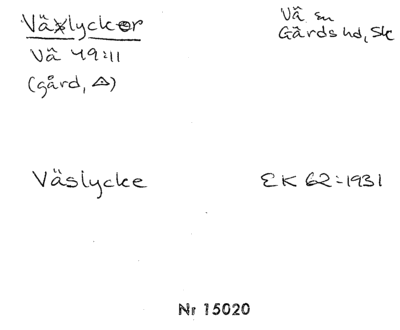 Väslyckor
Vä sn
Gärds hd, Sk
Vä 49:11
(gård, ⚠)
Väslycke
EK 62:1931
Nr 15020